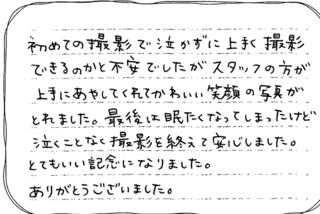 初めての撮影で泣かずに上手く撮影
できるのかと不安でしたがスタッフの方が
上手にあやしてくれてかわいい笑顔の写真が
とれました。最後は眠たくなってしまったけど
泣くことなく撮影を終えて安心しました。
とてもいい記念になりました。
ありがとうございました。